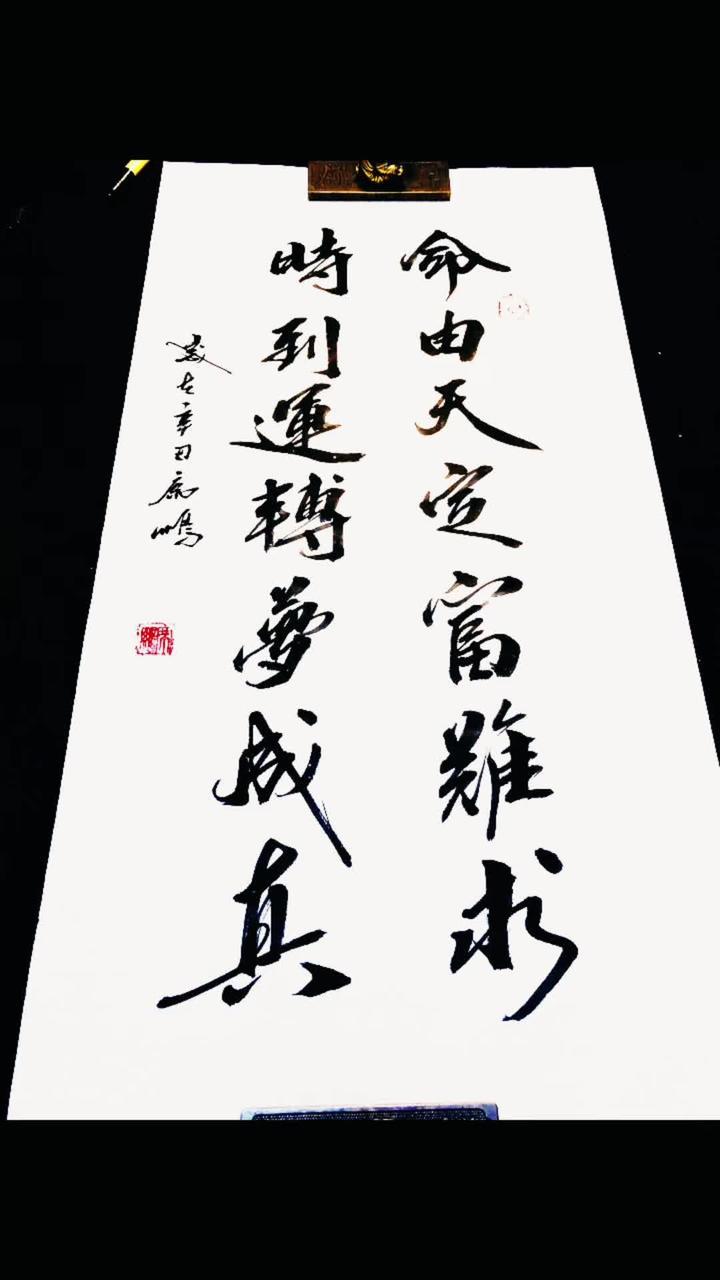 命由天定富難求
時到運轉夢成真
歲在辛丑